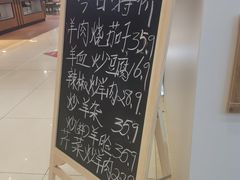 今日特价
羊肉烧茄子35.9
羊血炒豆腐16.9
辣椒炒羊肉28.9.
炒羊杂 35.9
炒羊脸36.9
芹菜炒羊肉